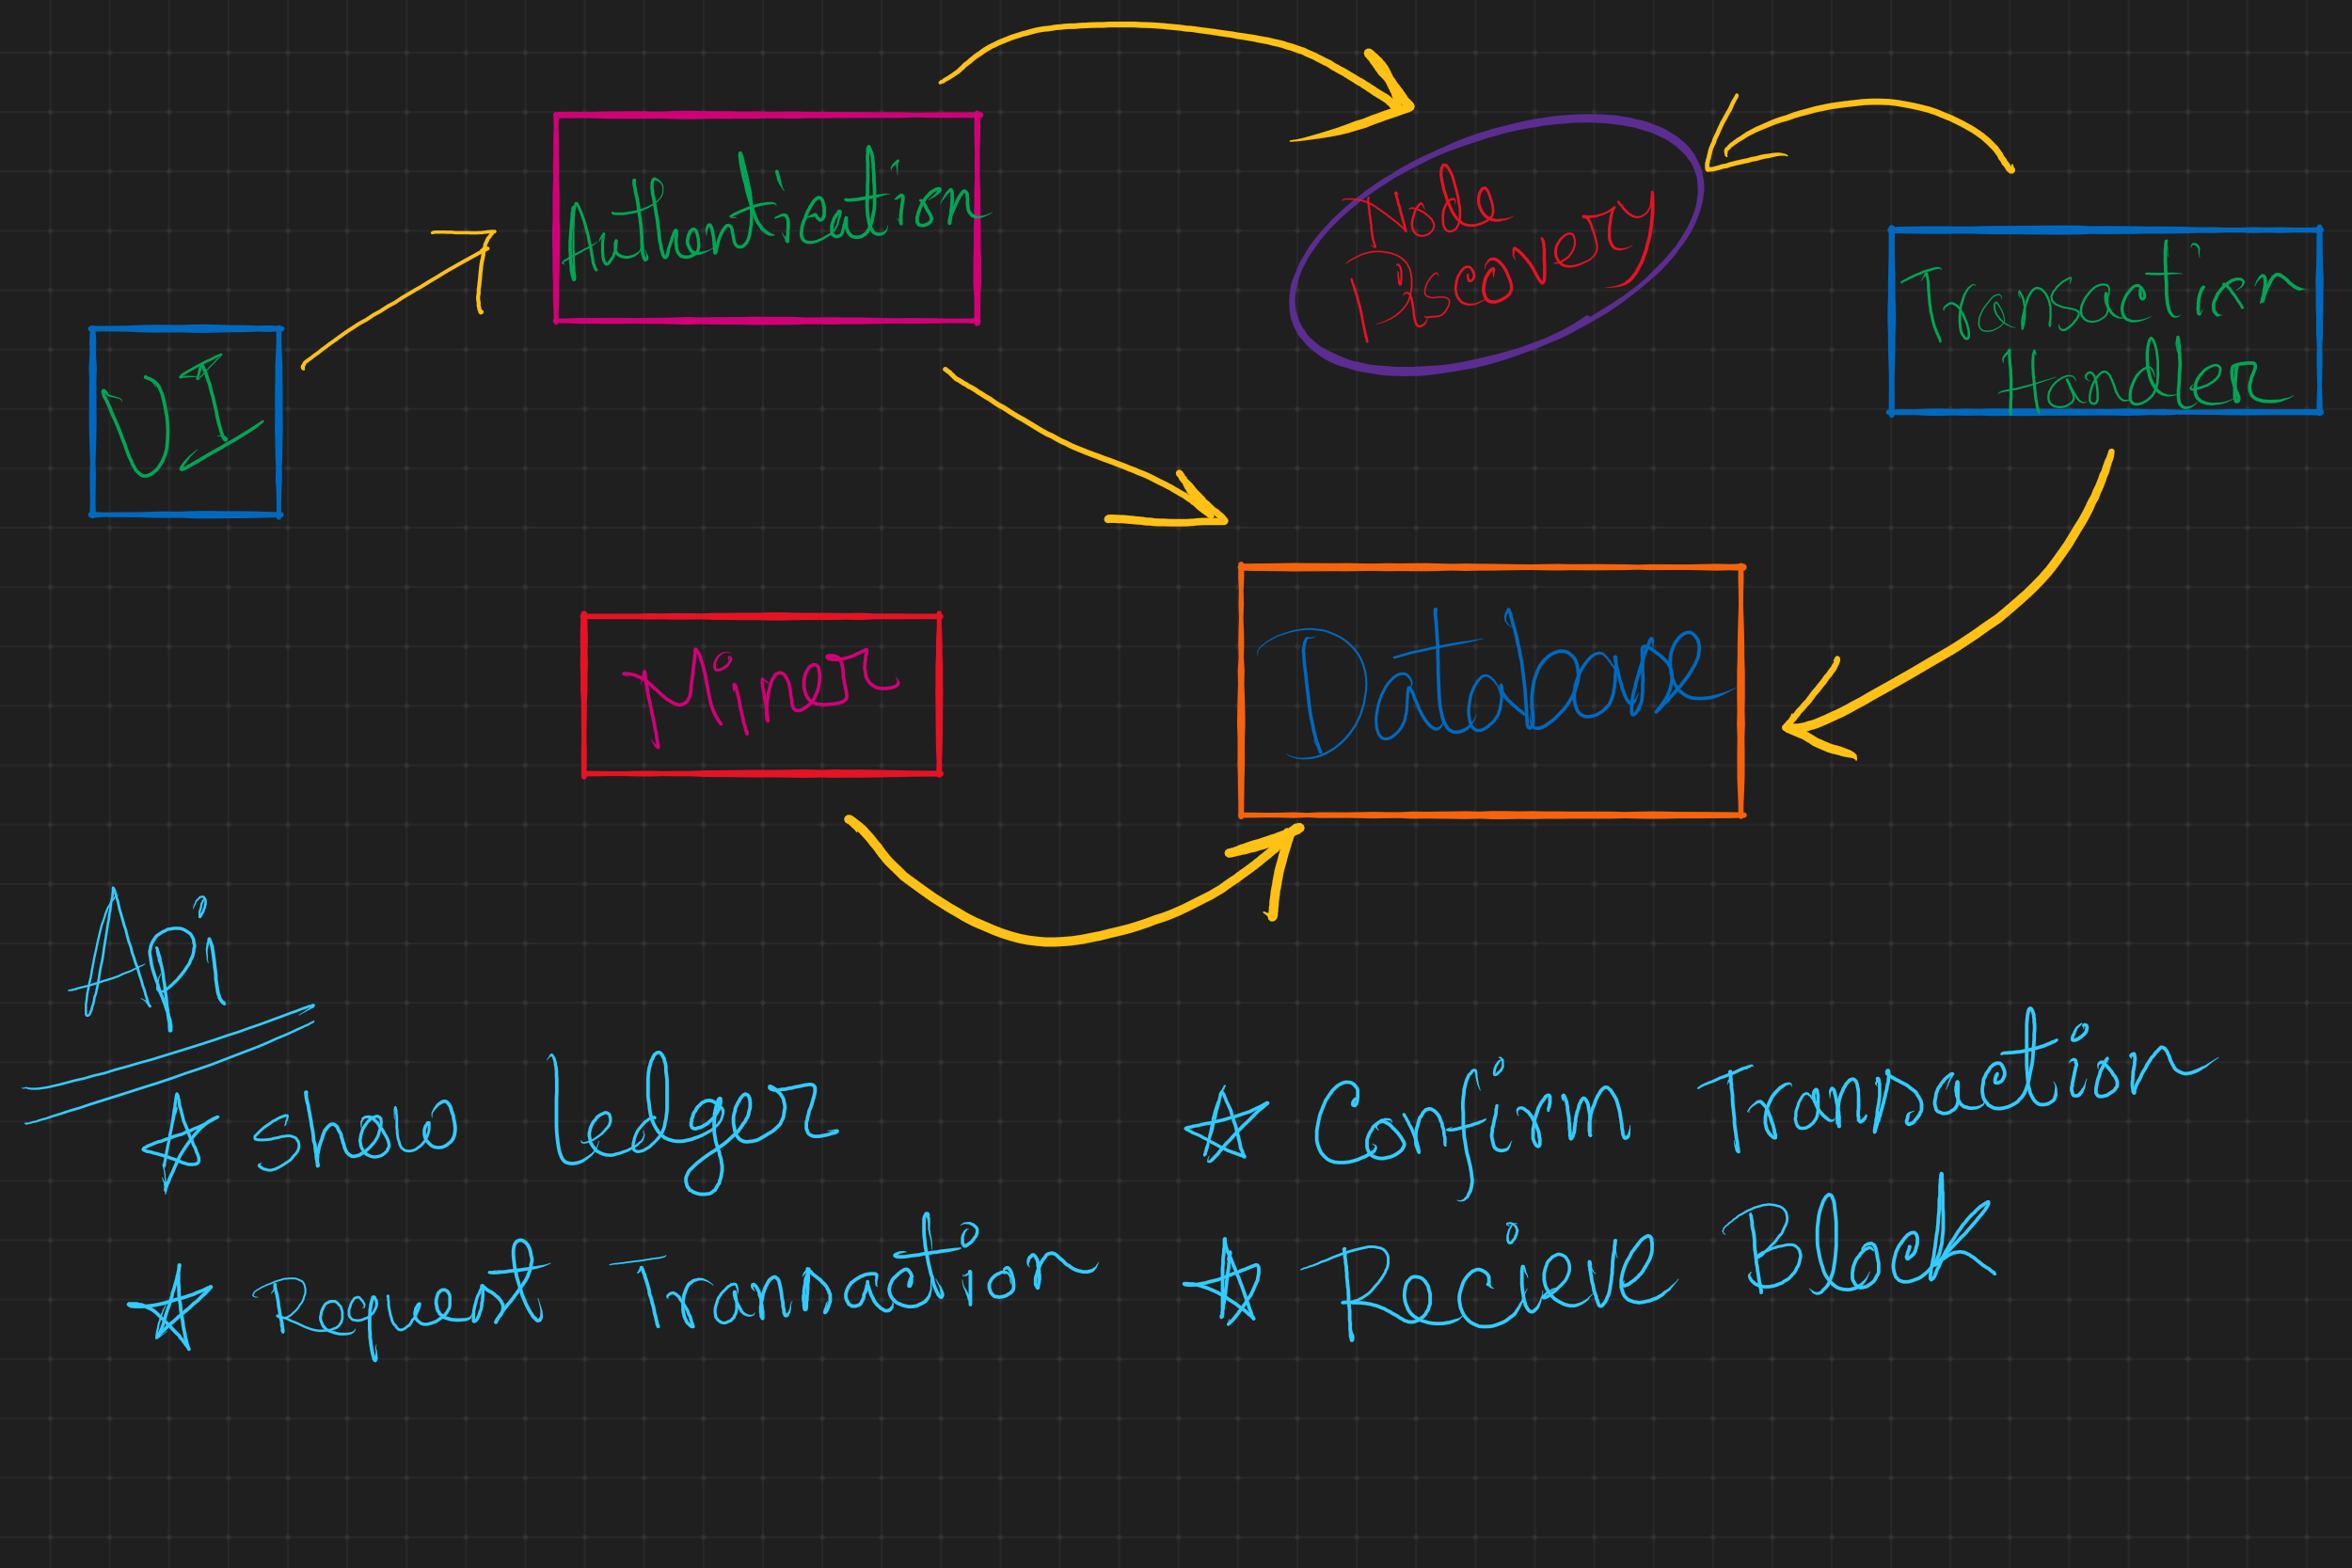 Authentication
Node
Discovery
Transaction
Handler
UI
Miner
Database
Api
show ledger
Confirm Transaction
Request Transaction
Recieve Block